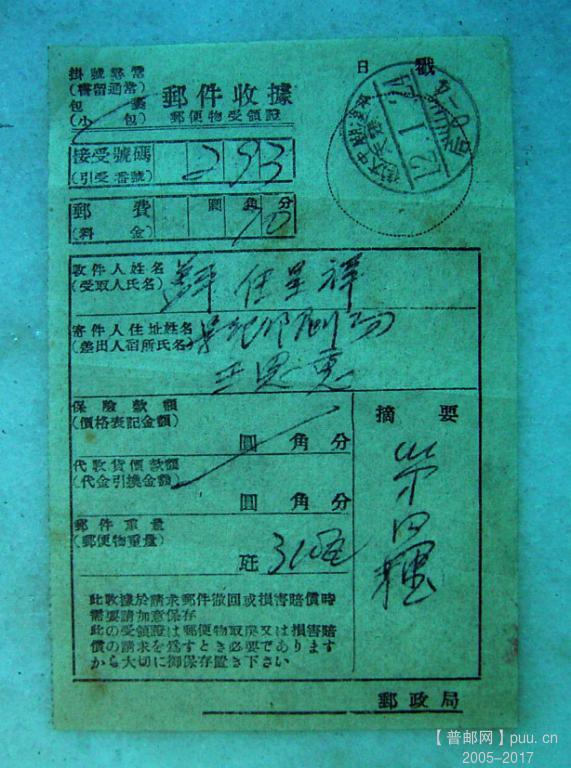 掛號 尋常
(書留通常)
包裹
(小包)
郵件收據
郵便物受領證
日 戳
12.1.
接受號碼
(引受番號)
293
郵費
(料金)
圓角分
收件人姓名
(受取人氏名)
任呈祥
寄件人住址姓名
(差出人宿所氏名)
保險款額
(價格表記金額)
圓 角 分
代收貨價款額
(代金引換金額)
圓 角 分
郵件重量
(郵便物重量)
瓩
摘要
此收據於請求郵件撤回或損害賠償時
需要請加意保存
此の受領證は郵便物取戾又は損害賠
償の請求を爲すとき必要であります
から大切に御保存置き下さい
郵政局
【普邮网】puu.cn
2005-2017